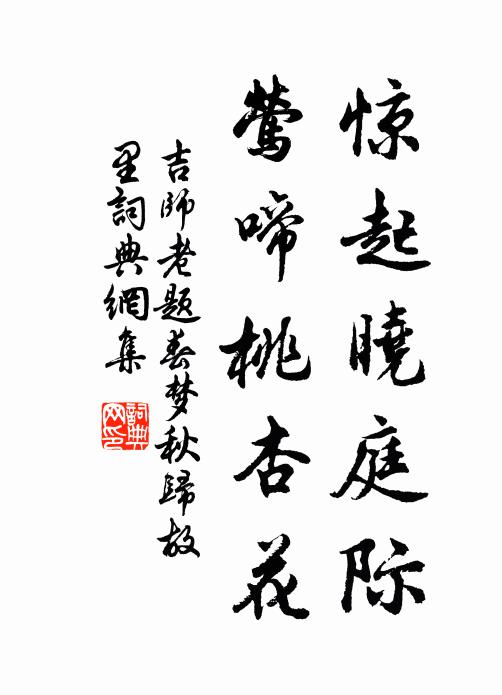 惊起曉庭际
鶯啼桃杏花
吉師老題春梦秋歸故
里詞典網集
詞典网印